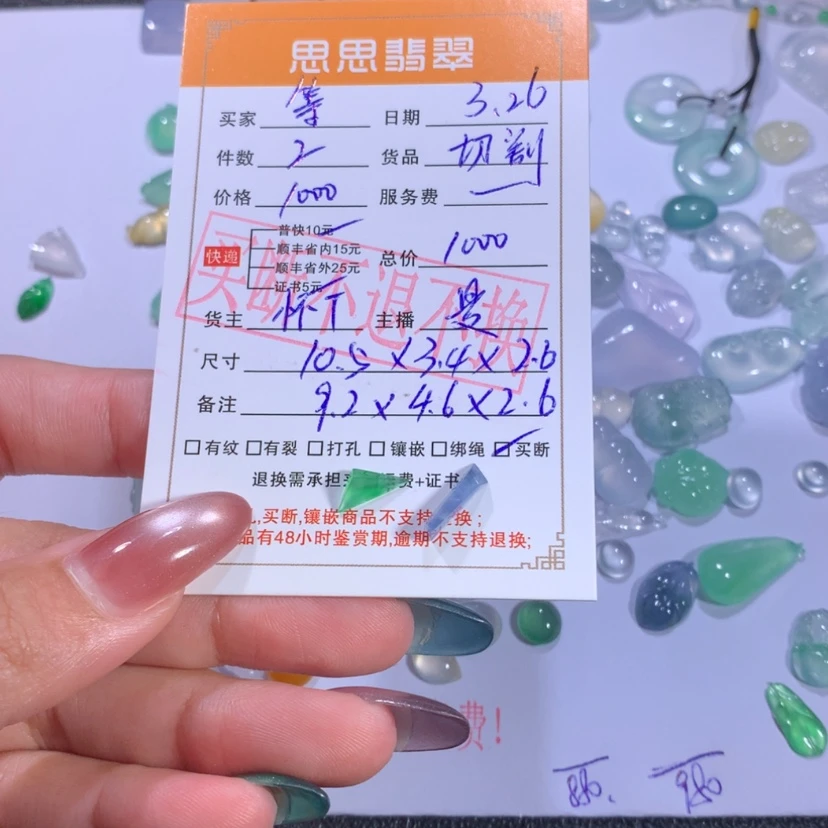 思思翡翠
买家 等 日期 3.26
件数 2 货品 切割
价格 1000 服务费 一
普快10元
顺丰省内15元
快递 总价 1000
顺丰省外25元
证书5元
买断不退不换
货主 主播 是
尺寸 10.5×3.4×2.6
备注 9.2×4.6×2.6
□有纹 □有裂 □打孔 □镶嵌 □绑绳 ☑买断
退换需承担 费+证书
,买断,镶嵌商品不支持 换;
品有48小时鉴赏期,逾期不支持退换;
费!
880. 980